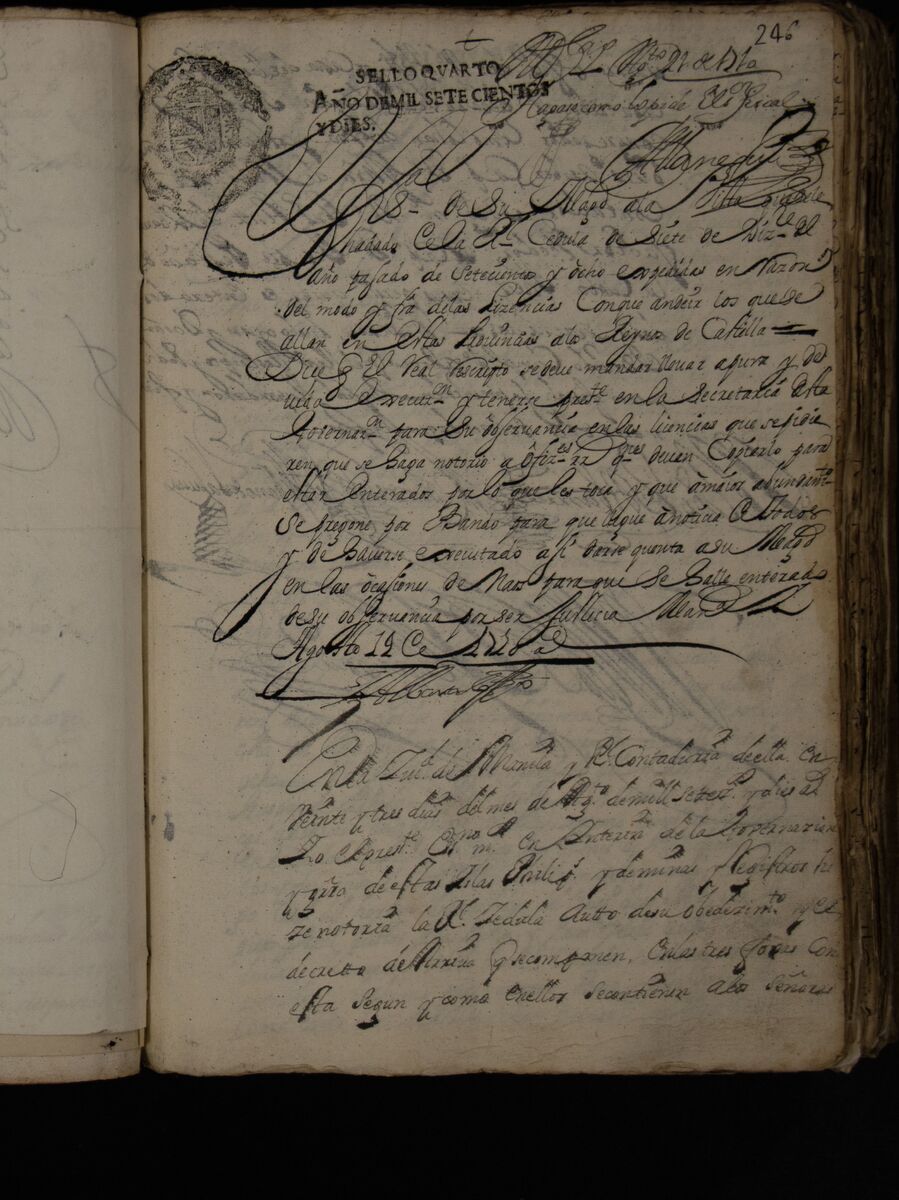 246
SELLO QVARTO
AÑO DE MIL SETECIENTOS
Y DIES.
21 de 1710
hagase como lo pide el Sr fiscal
de Su Magd a la Vista
trasladado de la Rl Cedula de Siete de Dizre del
año pasado de setecientos y ocho expedidas en razon
del modo y fra de las lizencias Con que an de ir los que se
allan en estas Prouincias a los Reynos de Castilla =
Dize q el Real rescripto se deue mandar lleuar a pura y de
uida execuzn y tenerse preste en la secretaria desta
Gouernazn para su obseruancia en las licencias que se pidie
ren que se haga notorio a ofizes Rs qes deuen Constarlo para
estar enterados por lo que les toca y que a maior abundamto
Se pregone por Bando para que llegue a noticia de todos
y de hauerse executado asi darse quenta a su Magd
en las ocasiones de Naos para que se halle enterado
de su obseruancia por ser Justicia Manila
Agosto 12 de 1710 as
En la Ziud de Manila y Rl Contaduria de ella en
veinte y tres dias del mes de Agto de mill setezs y dies as
Yo el preste Essno mr en Interin de la Gouernazion
y grra de estas Islas Philips y de minas y Registros hi
ze notoria la Rl Zedula Autto de su obedezimto y el
decretto de Arriua q se componen, en las tres foxas Con
esta segun y como en ellos se contienen a los señores